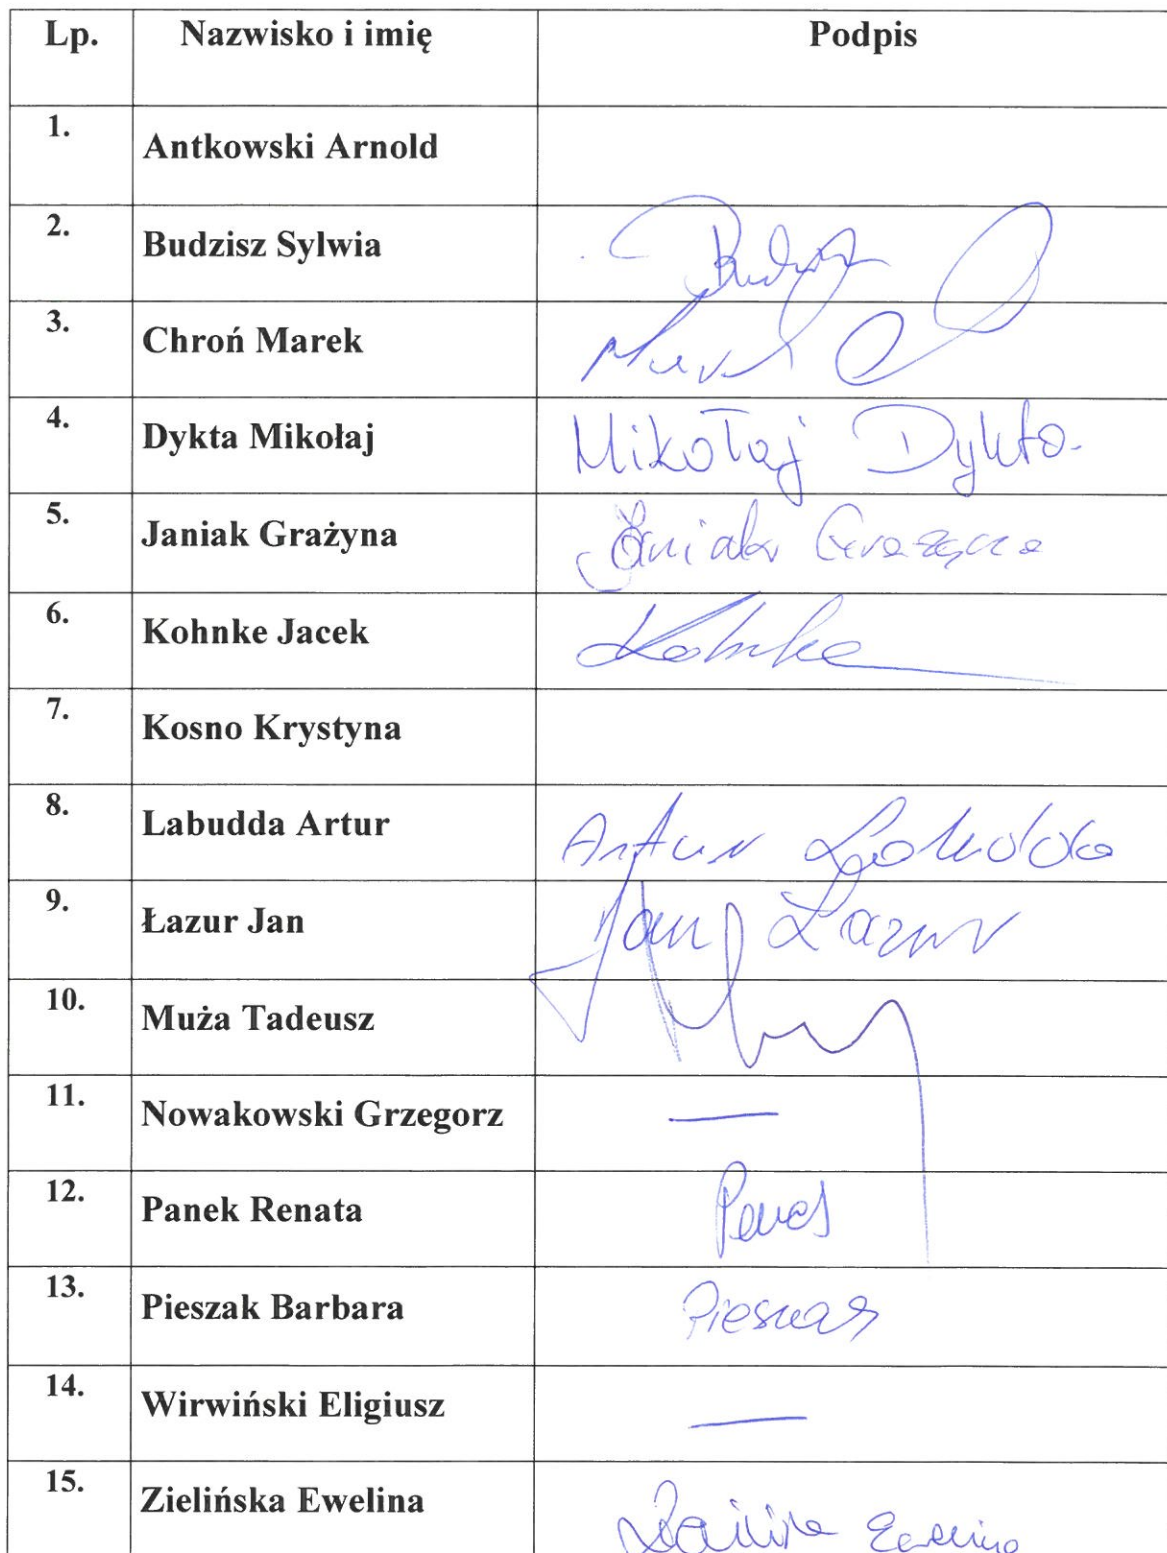 Lp. Nazwisko i imię Podpis
1. Antkowski Arnold
2. Budzisz Sylwia
3. Chroń Marek
4. Dykta Mikołaj Mikołaj Dykta
5. Janiak Grażyna Janiak Grażyna
6. Kohnke Jacek Kohnke
7. Kosno Krystyna
8. Labudda Artur Artur Labudda
9. Łazur Jan Jan Łazur
10. Muża Tadeusz
11. Nowakowski Grzegorz —
12. Panek Renata
13. Pieszak Barbara Pieszak
14. Wirwiński Eligiusz —
15. Zielińska Ewelina Ewelina